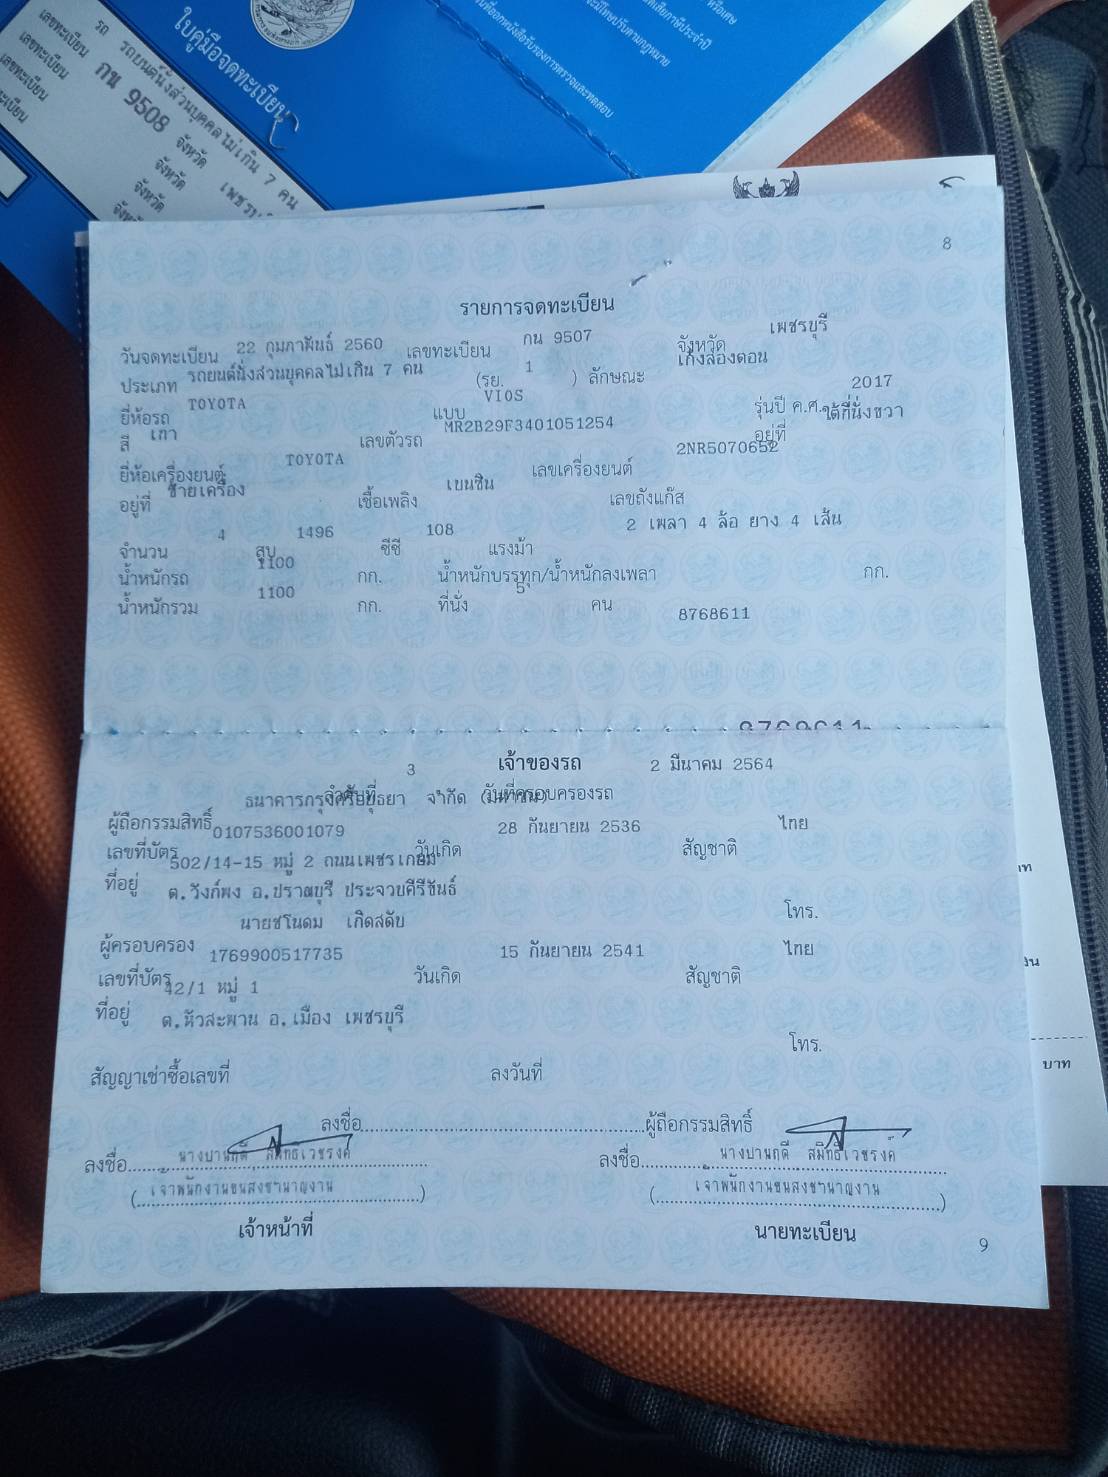 ใบคู่มือจดทะเบียน
รถ รถยนต์นั่งส่วนบุคคลไม่เกิน 7 คน
เลขทะเบียน กน 9508 จังหวัด เพชรบุ
เลขทะเบียน จังหวัด
เลขทะเบียน จังหวัด
8
รายการจดทะเบียน
วันจดทะเบียน 22 กุมภาพันธ์ 2560 เลขทะเบียน กน 9507 จังหวัด เพชรบุรี
ประเภท รถยนต์นั่งส่วนบุคคลไม่เกิน 7 คน (รย. 1 ) ลักษณะ เก๋งสองตอน
ยี่ห้อรถ TOYOTA แบบ VIOS รุ่นปี ค.ศ. 2017
สี เทา เลขตัวรถ MR2B29F3401051254 อยู่ที่ ใต้ที่นั่งขวา
ยี่ห้อเครื่องยนต์ TOYOTA เลขเครื่องยนต์ 2NR5070652
อยู่ที่ ซ้ายเครื่อง เชื้อเพลิง เบนซิน เลขถังแก๊ส
จำนวน 4 สูบ 1496 ซีซี 108 แรงม้า 2 เพลา 4 ล้อ ยาง 4 เส้น
น้ำหนักรถ 1100 กก. น้ำหนักบรรทุก/น้ำหนักลงเพลา กก.
น้ำหนักรวม 1100 กก. ที่นั่ง 5 คน
8768611
เจ้าของรถ
ลำดับที่ 3 วันที่ครอบครองรถ 2 มีนาคม 2564
ผู้ถือกรรมสิทธิ์ ธนาคารกรุงศรีอยุธยา จำกัด (มหาชน)
เลขที่บัตร 0107536001079 วันเกิด 28 กันยายน 2536 สัญชาติ ไทย
ที่อยู่ 502/14-15 หมู่ 2 ถนนเพชรเกษม
ต.วังก์พง อ.ปราณบุรี ประจวบคีรีขันธ์ โทร.
ผู้ครอบครอง นายชโนดม เกิดสดับ
เลขที่บัตร 1769900517735 วันเกิด 15 กันยายน 2541 สัญชาติ ไทย
ที่อยู่ 42/1 หมู่ 1
ต.หัวสะพาน อ.เมือง เพชรบุรี โทร.
สัญญาเช่าซื้อเลขที่ ลงวันที่
ลงชื่อ ผู้ถือกรรมสิทธิ์
ลงชื่อ นางปานฤดี สมิทธิเวชรงค์ ลงชื่อ นางปานฤดี สมิทธิเวชรงค์
( เจ้าพนักงานขนส่งชำนาญงาน ) ( เจ้าพนักงานขนส่งชำนาญงาน )
เจ้าหน้าที่ นายทะเบียน
9
บาท